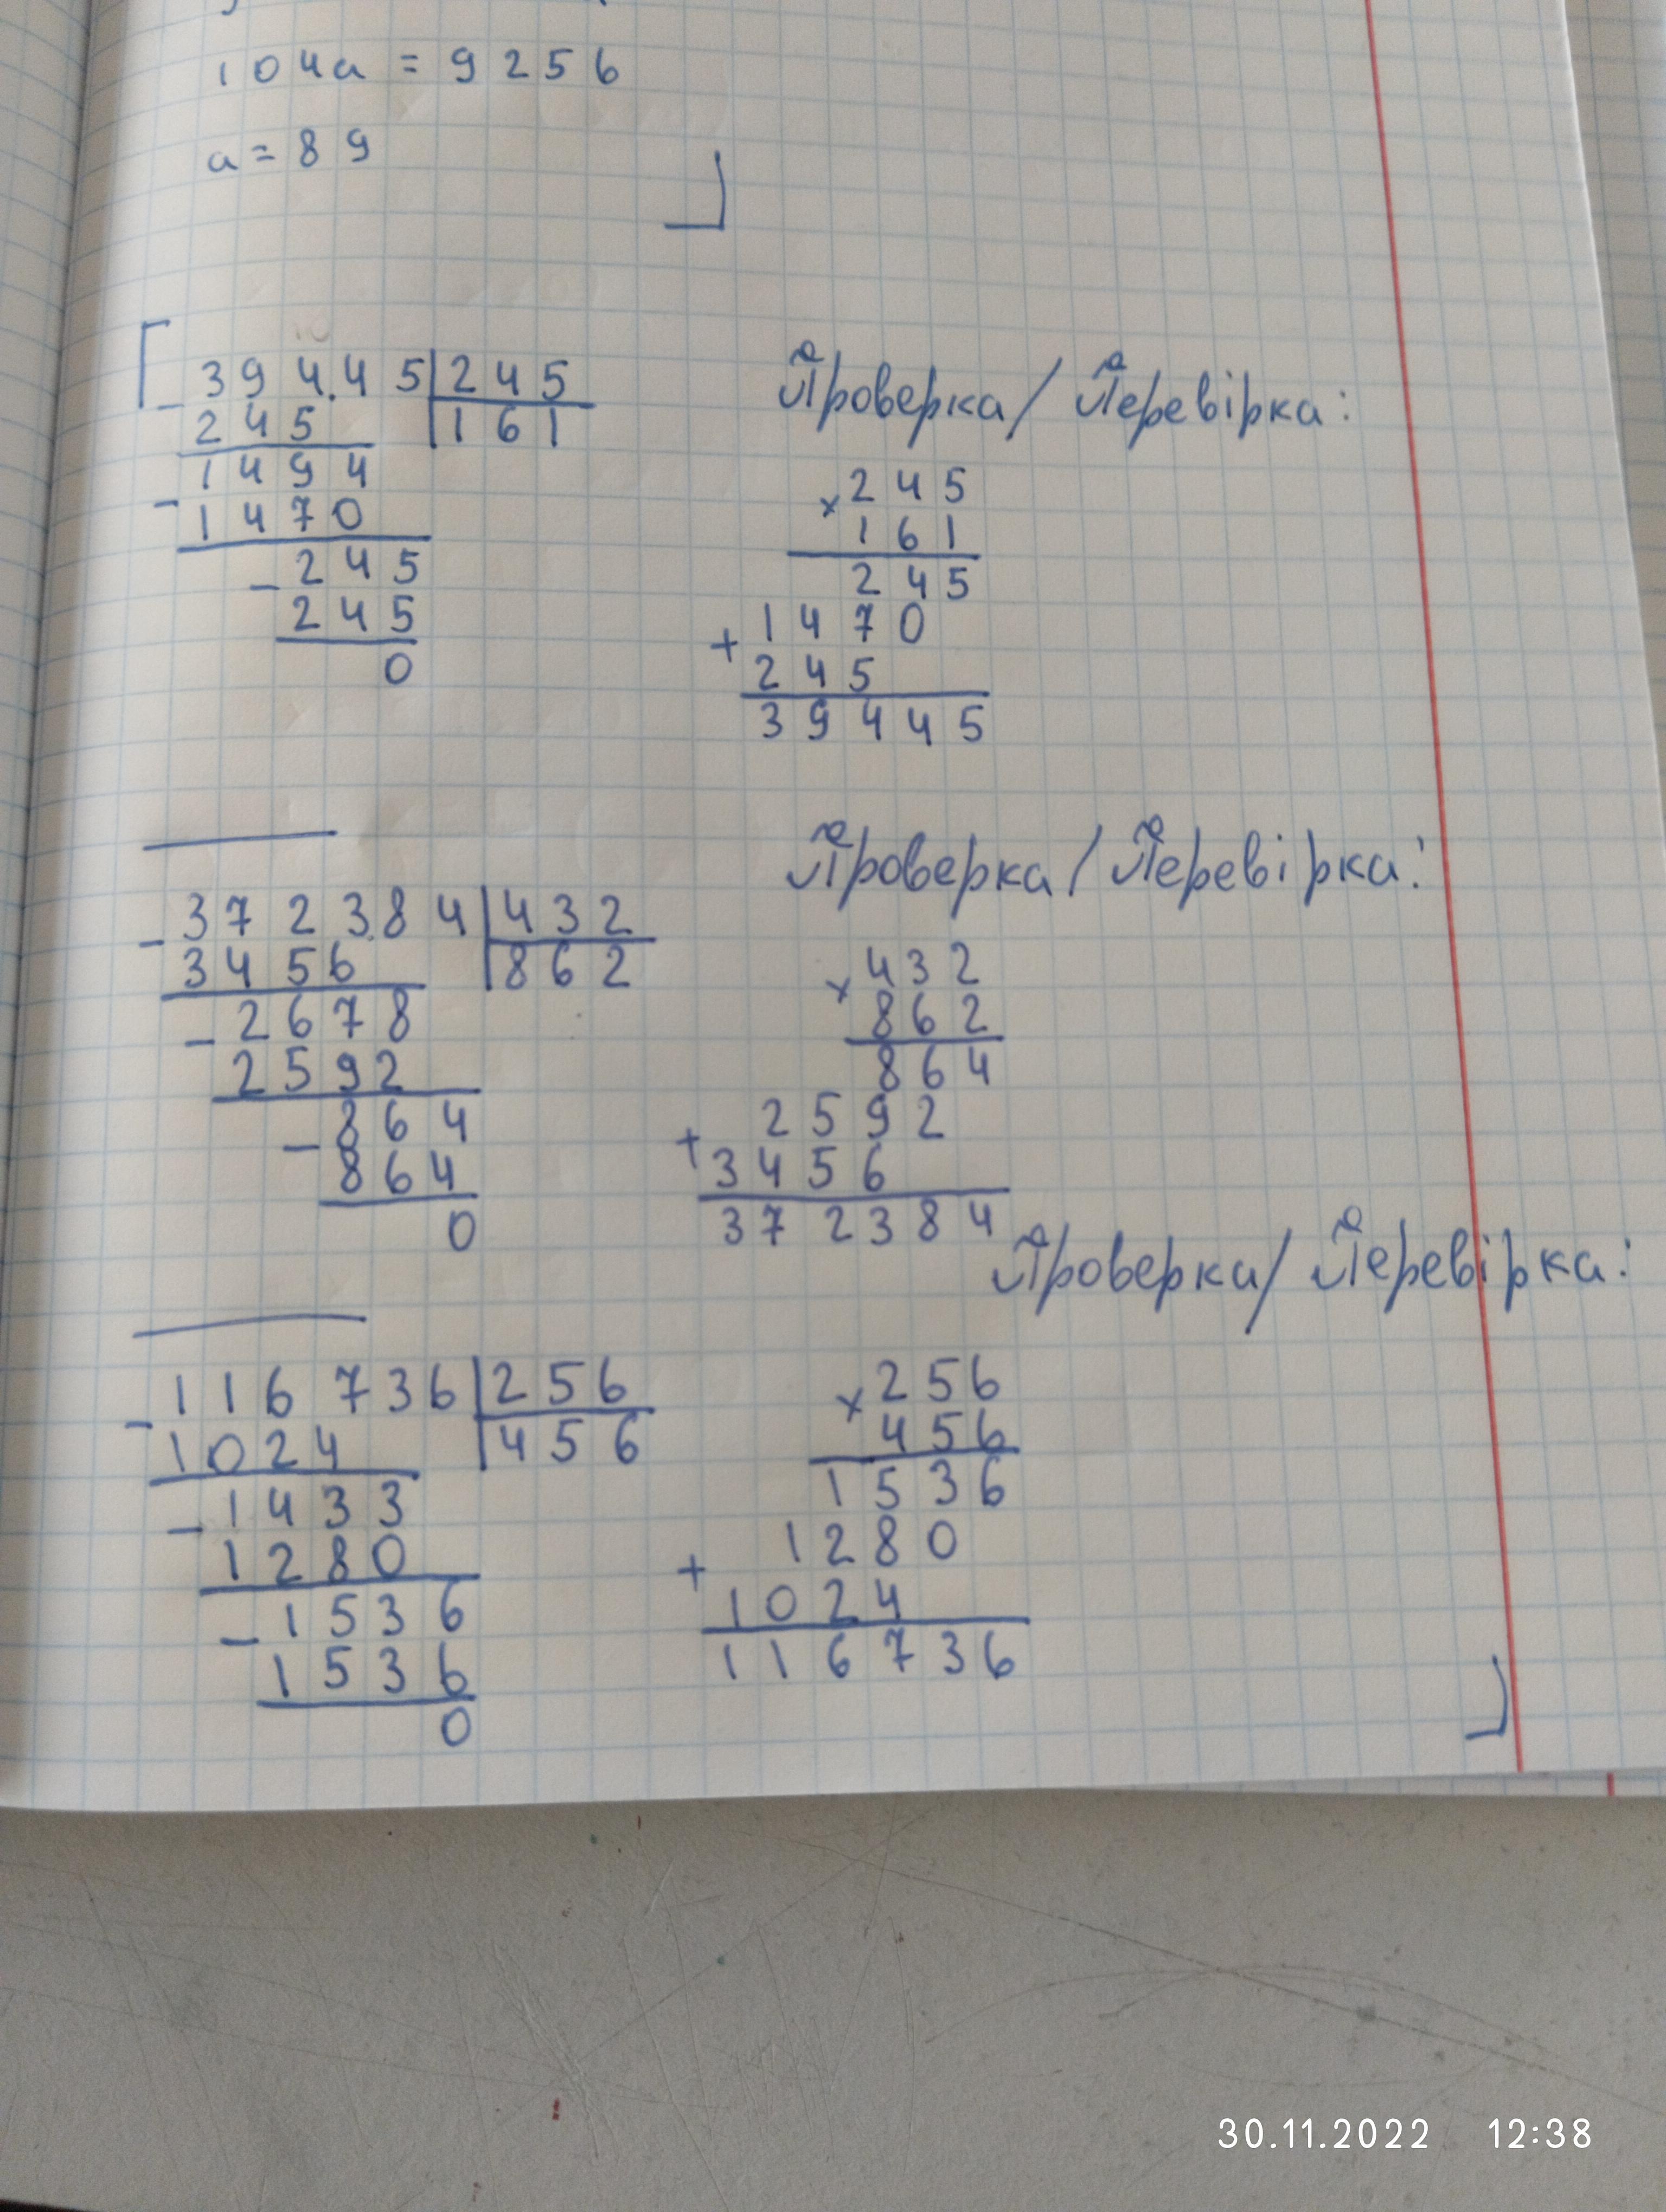 104a = 9256
a = 89
39445 245
- 245 161
1494
- 1470
- 245
245
0
Проверка / Перевірка:
× 245
161
245
1470
+ 245
39445
- 372384 432
3456 862
- 2678
2592
- 864
864
0
Проверка / Перевірка:
× 432
862
864
2592
+ 3456
372384
- 116736 256
1024 456
- 1433
1280
- 1536
1536
0
Проверка / Перевірка:
× 256
456
1536
1280
+ 1024
116736
30.11.2022 12:38